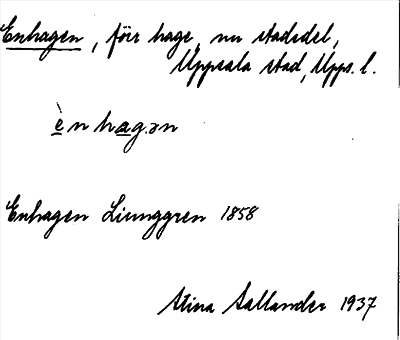 Enhagen, förr hage, nu stadsdel,
Uppsala stad, Upps. l.
ènhag.ən
Enhagen Ljunggren 1858
Stina Sallander 1937